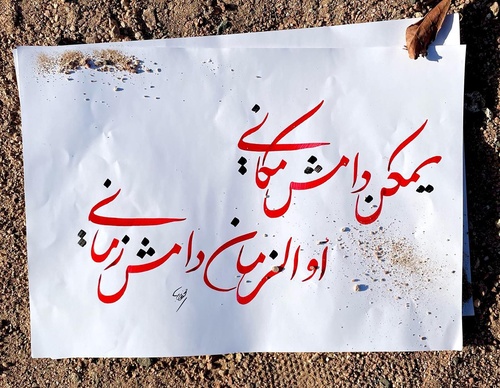 يمكن دا مش مكاني
او الزمان دا مش زماني